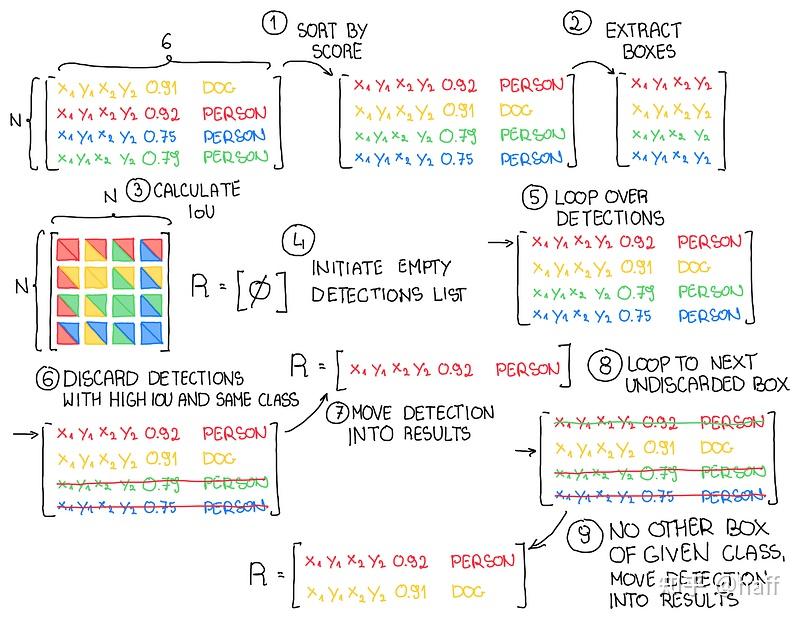 ① SORT BY
SCORE
② EXTRACT
BOXES
6
N
x₁ y₁ x₂ y₂ 0.91 DOG
x₁ y₁ x₂ y₂ 0.92 PERSON
x₁ y₁ x₂ y₂ 0.75 PERSON
x₁ y₁ x₂ y₂ 0.79 PERSON
x₁ y₁ x₂ y₂ 0.92 PERSON
x₁ y₁ x₂ y₂ 0.91 DOG
x₁ y₁ x₂ y₂ 0.79 PERSON
x₁ y₁ x₂ y₂ 0.75 PERSON
x₁ y₁ x₂ y₂
x₁ y₁ x₂ y₂
x₁ y₁ x₂ y₂
x₁ y₁ x₂ y₂
③ CALCULATE
IoU
N
N
④
INITIATE EMPTY
DETECTIONS LIST
R = [∅]
⑤ LOOP OVER
DETECTIONS
x₁ y₁ x₂ y₂ 0.92 PERSON
x₁ y₁ x₂ y₂ 0.91 DOG
x₁ y₁ x₂ y₂ 0.79 PERSON
x₁ y₁ x₂ y₂ 0.75 PERSON
⑥ DISCARD DETECTIONS
WITH HIGH IOU AND SAME CLASS
x₁ y₁ x₂ y₂ 0.92 PERSON
x₁ y₁ x₂ y₂ 0.91 DOG
x₁ y₁ x₂ y₂ 0.79 PERSON
x₁ y₁ x₂ y₂ 0.75 PERSON
R = [x₁ y₁ x₂ y₂ 0.92 PERSON]
⑦ MOVE DETECTION
INTO RESULTS
⑧ LOOP TO NEXT
UNDISCARDED BOX
x₁ y₁ x₂ y₂ 0.92 PERSON
x₁ y₁ x₂ y₂ 0.91 DOG
x₁ y₁ x₂ y₂ 0.79 PERSON
x₁ y₁ x₂ y₂ 0.75 PERSON
⑨ NO OTHER BOX
OF GIVEN CLASS,
MOVE DETECTION
INTO RESULTS
R =
x₁ y₁ x₂ y₂ 0.92 PERSON
x₁ y₁ x₂ y₂ 0.91 DOG
知乎 @haff